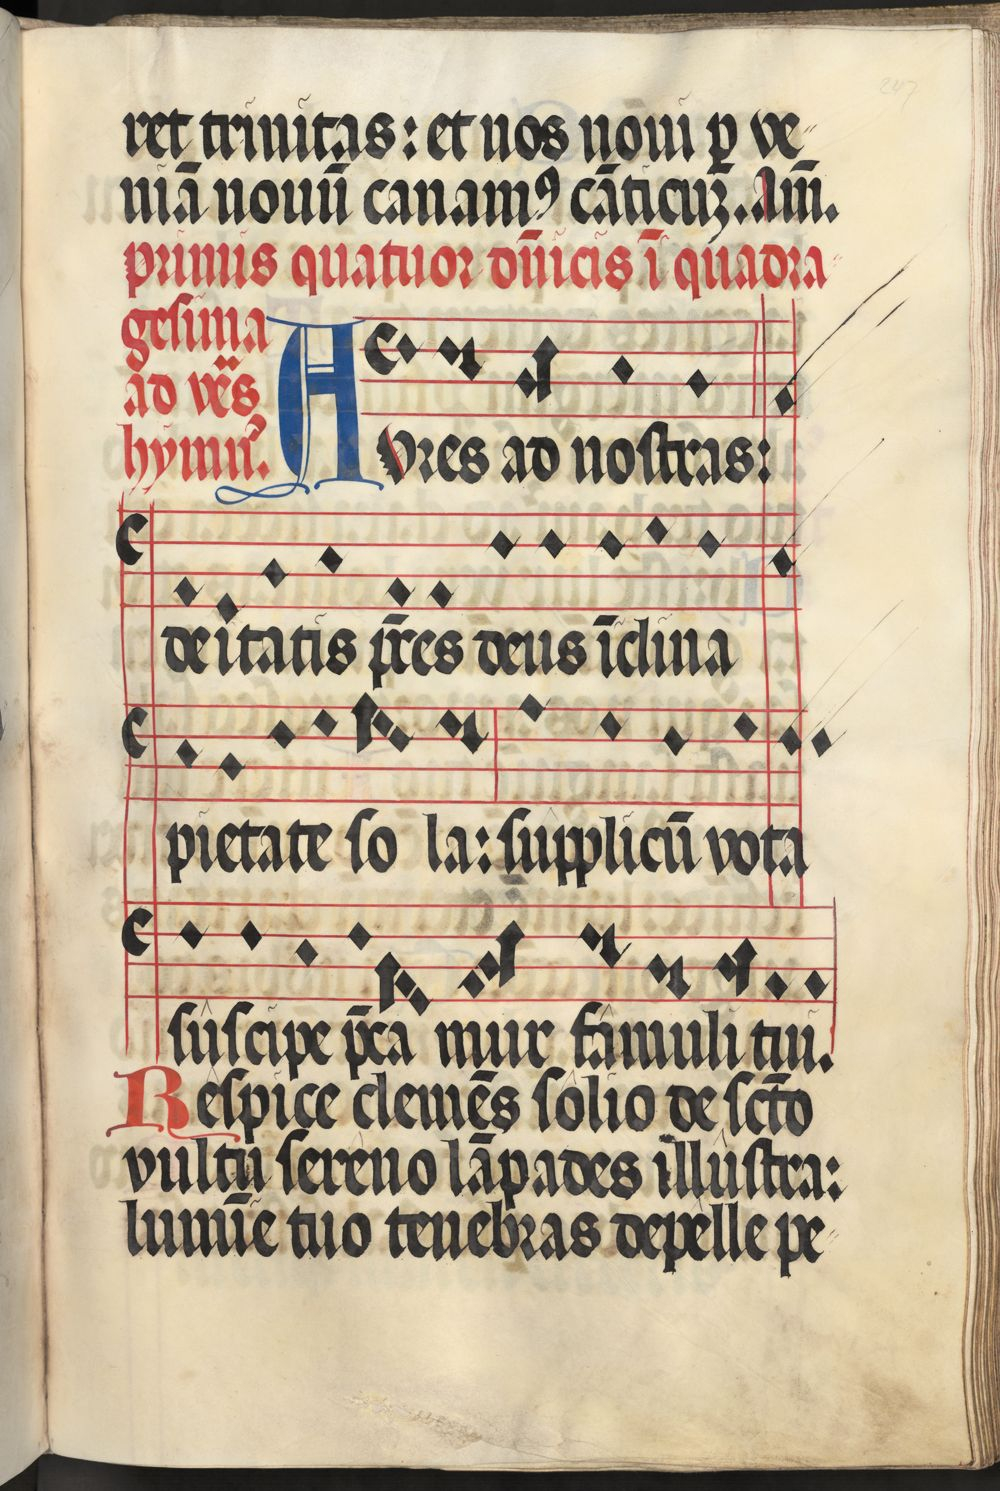 ret trinitas: et nos noui ꝑ ve
niā nouū canamꝰ cāticuꝫ. Am̄.
primis quatuor dn̄icis ī quadra
gesima
ad ves
hymn.
Aures ad nostras:
deitatis p̄ces deus īclina
pietate so la: supplicū vota
suscipe p̄ca mur famuli tui.
Respice clemēs solio de scto
vultu sereno lāpades illustra:
lumīe tuo tenebras depelle pe